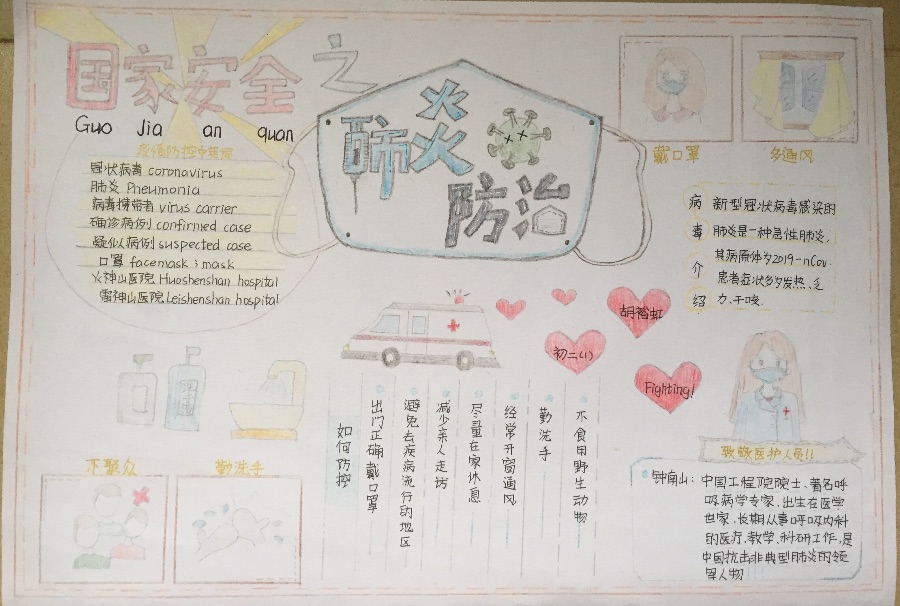 国家安全之
Guo Jia an quan
肺炎
防治
戴口罩
多通风
疫情防控中英词
冠状病毒 coronavirus
肺炎 Pneumonia
病毒携带者 virus carrier
确诊病例 confirmed case
疑似病例 suspected case
口罩 facemask; mask
火神山医院 Huoshenshan hospital
雷神山医院 Leishenshan hospital
病毒介绍
新型冠状病毒感染的
肺炎是一种急性肺炎,
其病原体为2019-nCov.
患者症状多为发热、乏
力、干咳.
胡裕虹
初二(1)
Fighting!
洗手液
如何防控
出门正确戴口罩
避免去疾病流行的地区
减少亲人走访
尽量在家休息
经常开窗通风
勤洗手
不食用野生动物
不聚众
勤洗手
致敬医护人员!!
钟南山:中国工程院院士、著名呼
吸病学专家,出生在医学
世家,长期从事呼吸内科
的医疗、教学、科研工作,是
中国抗击非典型肺炎的领
军人物